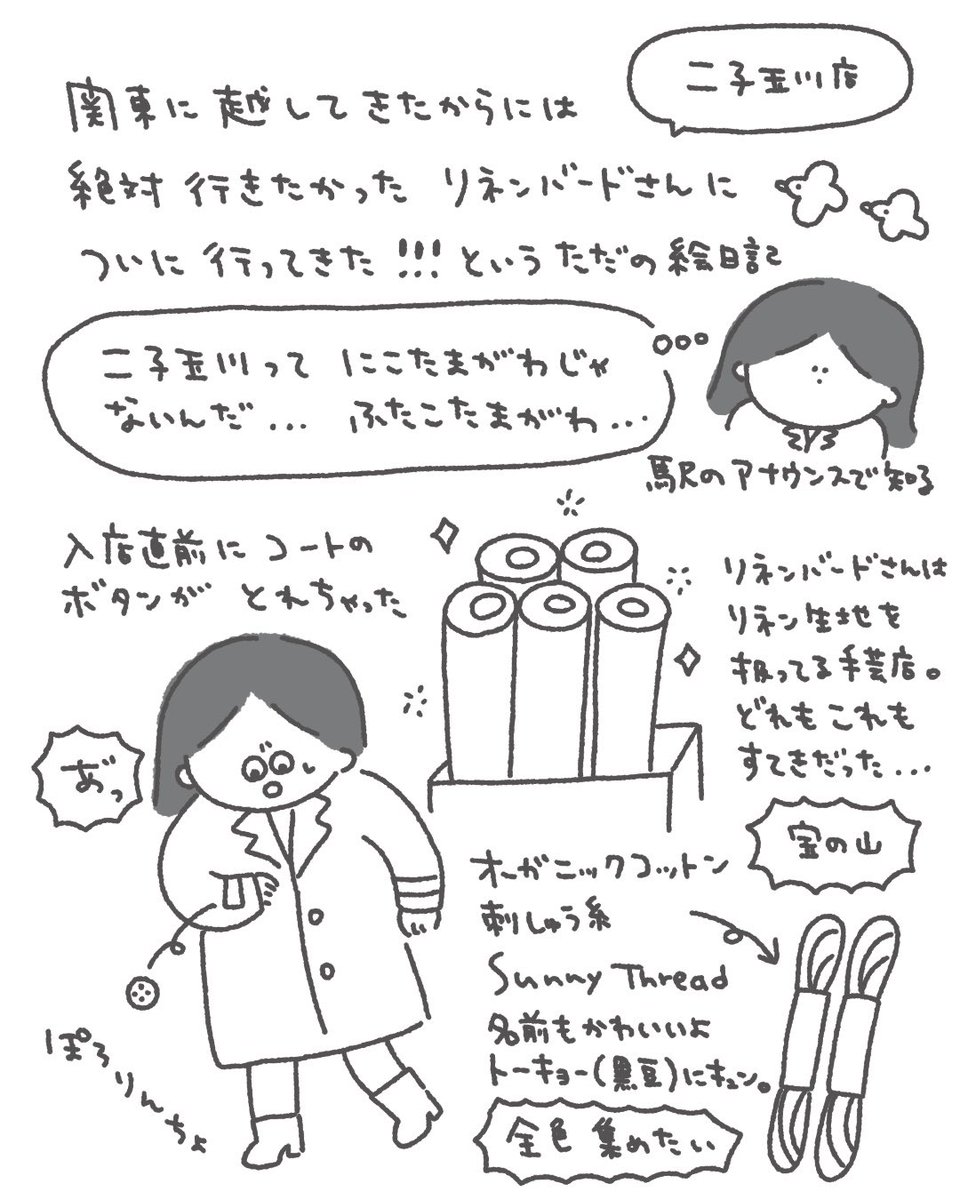 二子玉川店
関東に越してきたからには
絶対行きたかった リネンバードさんに
ついに行ってきた!!!というただの絵日記
二子玉川って にこたまがわじゃ
ないんだ... ふたこたまがわ...
駅のアナウンスで知る
入店直前にコートの
ボタンが とれちゃった
リネンバードさんは
リネン生地を
扱ってる手芸店。
どれもこれも
すてきだった...
あ゛っ
宝の山
オーガニックコットン
刺しゅう糸
Sunny Thread
名前もかわいいよ
トーキョー(黒豆)にキュン。
ぽろりんちょ
全色集めたい